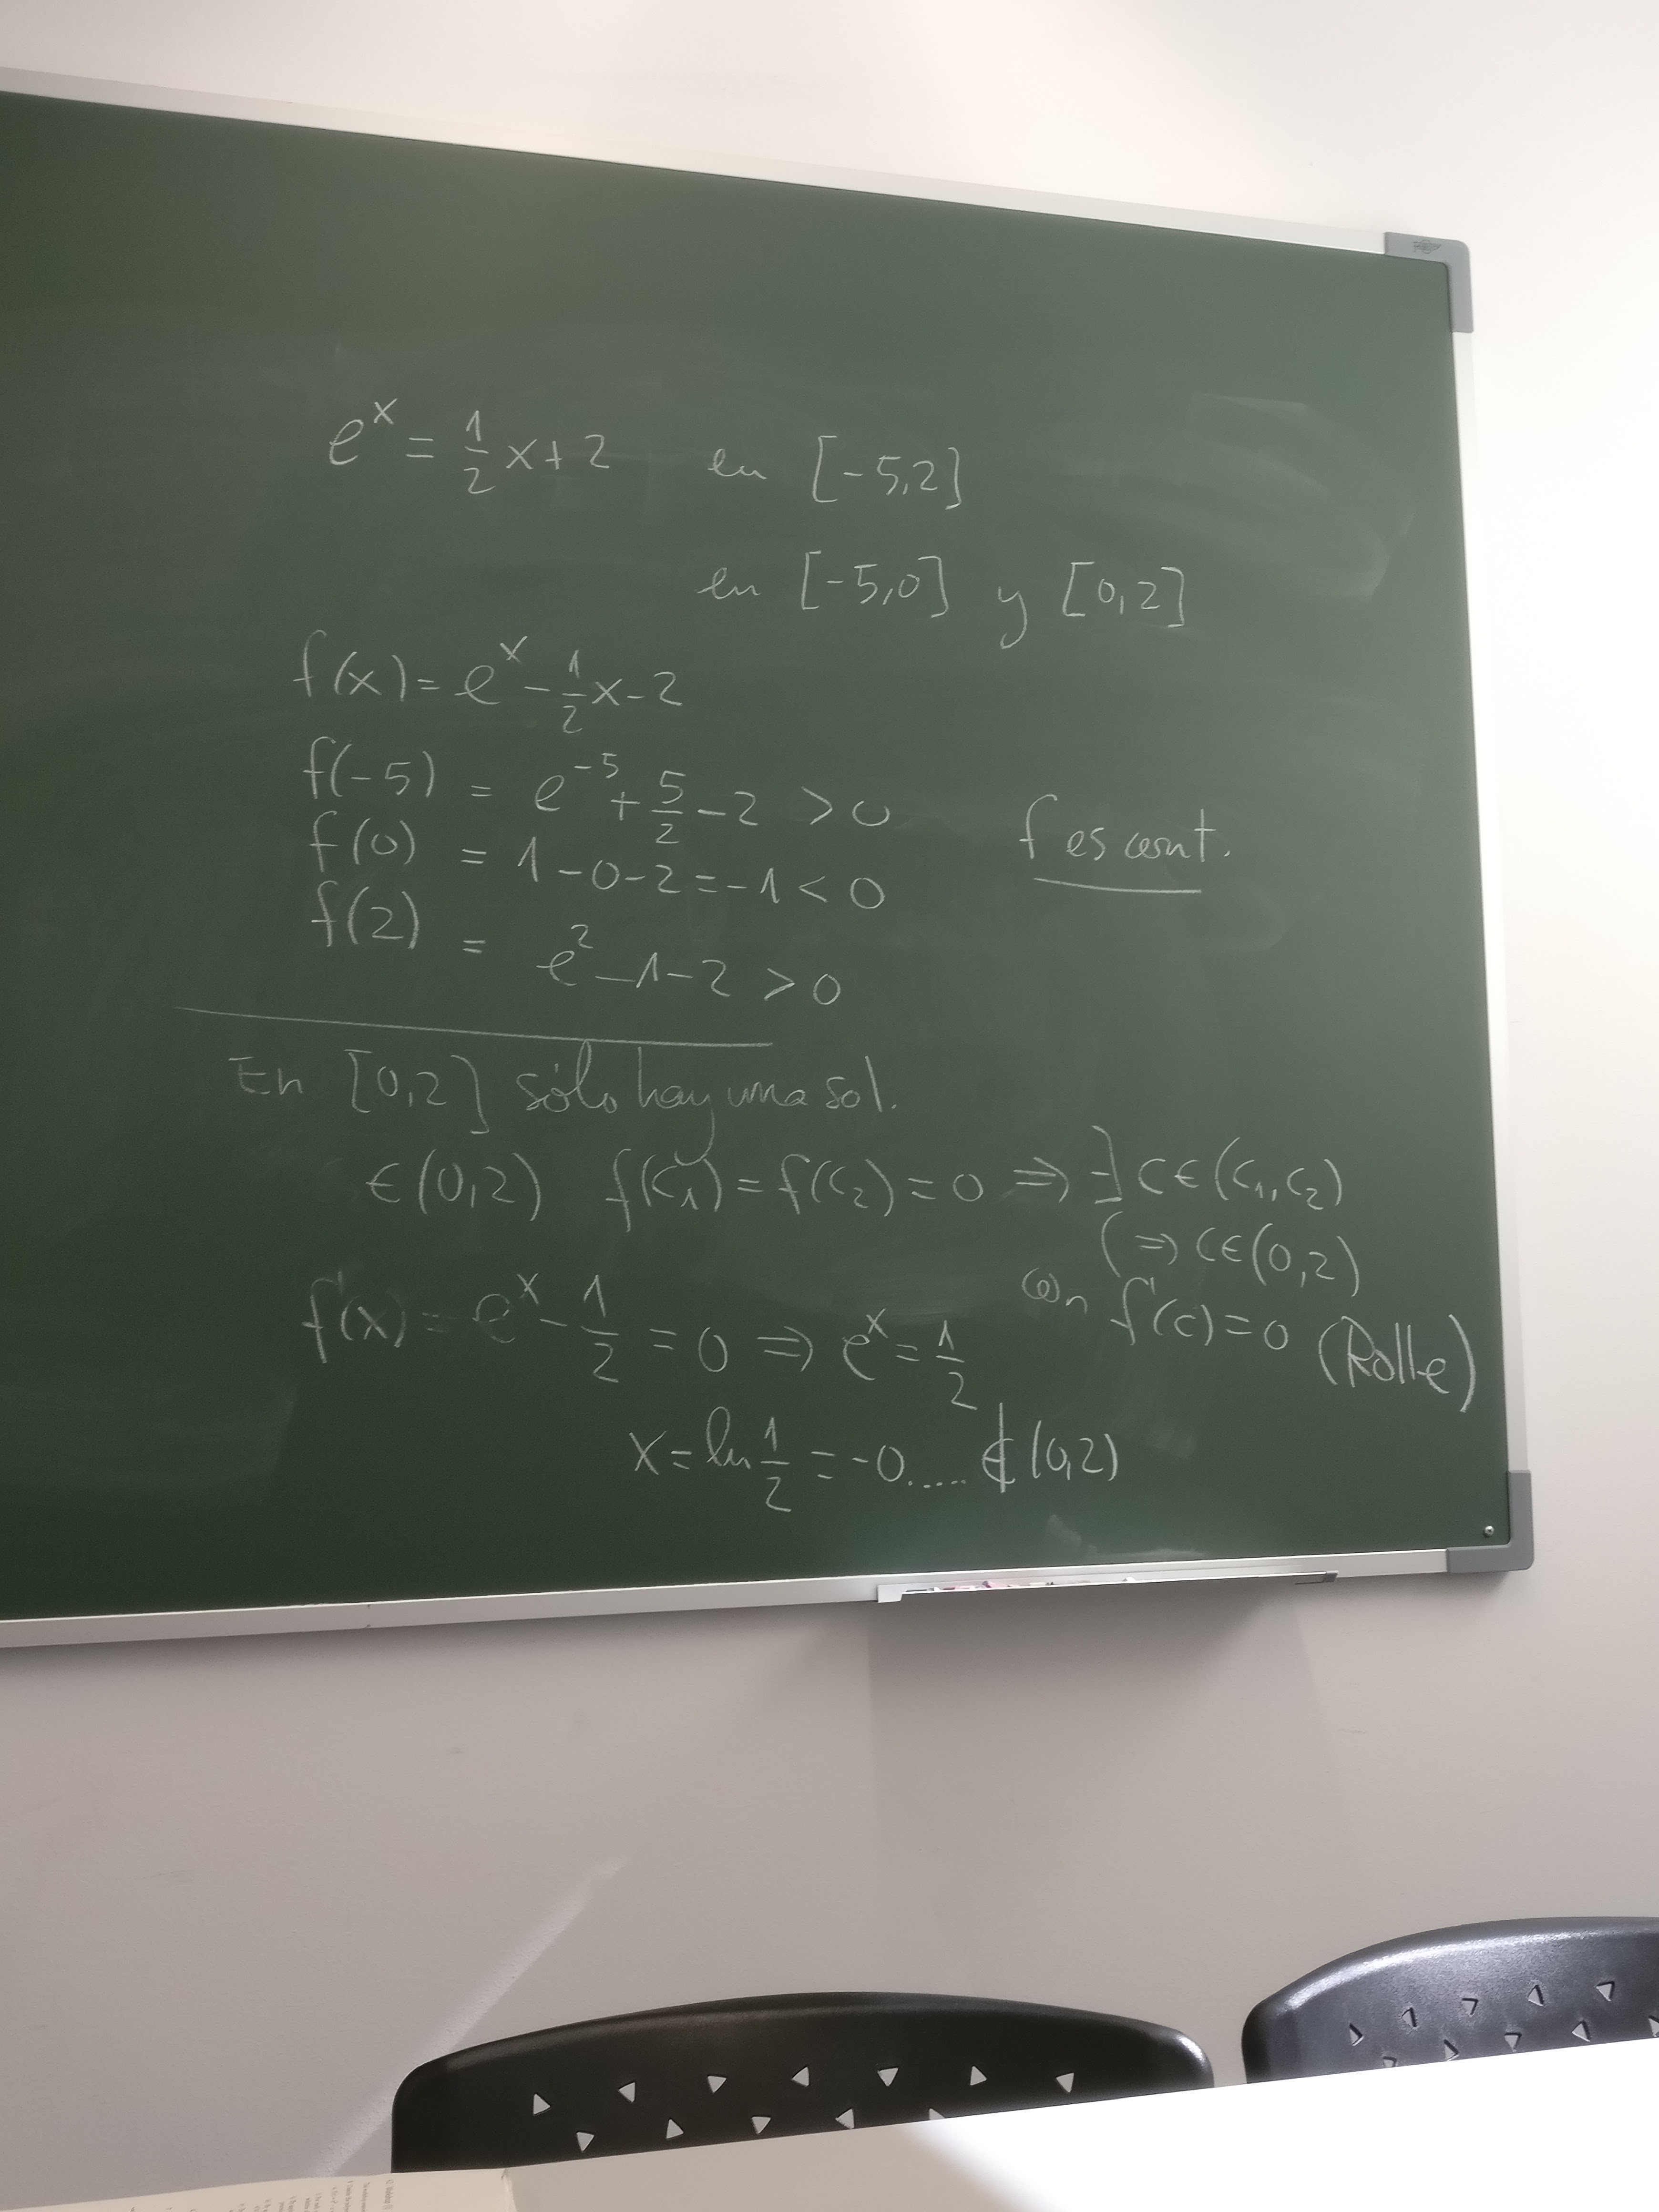 e^x = 1/2 x + 2 en [-5,2]
en [-5,0] y [0,2]
f(x) = e^x - 1/2 x - 2
f(-5) = e^-5 + 5/2 - 2 > 0
f es cont.
f(0) = 1 - 0 - 2 = -1 < 0
f(2) = e^2 - 1 - 2 > 0
En [0,2] sólo hay una sol.
∈ (0,2) f(c₁) = f(c₂) = 0 ⇒ ∃ c ∈ (c₁, c₂)
(⇒ c ∈ (0,2)
con f'(c) = 0 (Rolle)
f'(x) = e^x - 1/2 = 0 ⇒ e^x = 1/2
x = ln 1/2 = -0..... ∉ (0,2)